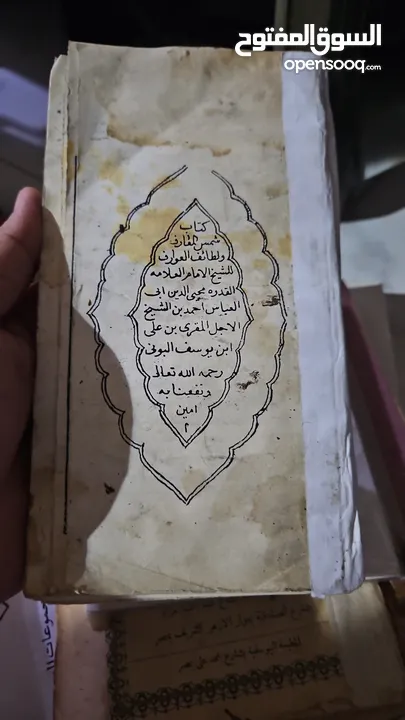 السوق المفتوح
opensooq.com
كتاب
شمس المعارف
ولطائف العوارف
للشيخ الامام العلامه
القدره محيي الدين ابى
العباس أحمد بن الشيخ
الاجل المقري بن على
ابن يوسف البونى
رحمه الله تعالى
ونفعنا به
امين
م